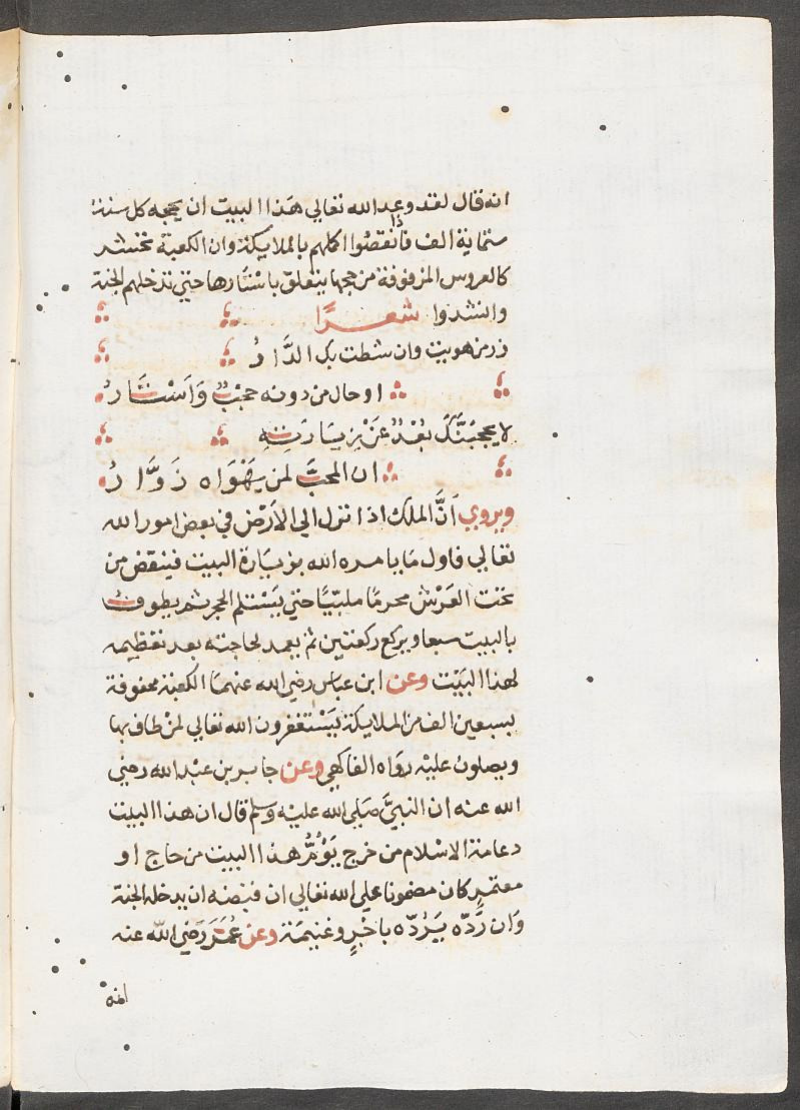 انه قال لقد وعد الله تعالي هذا البيت ان يحجه كل سنة
ستماية الف فاذا نقصوا اكلهم بالملايكة وان الكعبة تحشر
كالعروس المزفوفة من حجها يتعلق باستارها حتي تدخلهم الجنة
وانشدوا شعرًا
زر من هويت وان شطت بك الدَّارُ
او حال من دونه حجبٌ وَاَسْتَارُ
لا يمنعنَّكَ بُعْدٌ عَنْ زيَارَتِهِ
ان المحبَّ لمن يَهْوَاه زَوَّارُ
ويروي اَنَّ الملك اذا نزل الي الاَرْض في بعض امور الله
تعالي فاول مَا يامره الله بزيَارة البيت فينقض من
تحت العَرْش محرمًا ملبّيًا حتي يَسْتلم الحجر ثم يطوف
بالبيت سبعا ويركع ركعتين ثم يعمد لحاجته بعد تعظيمه
لهذا البَيْت وعن ابن عباس رضي الله عنهمَا الكعبة محفوفة
بسبعين الف من الملايكة يَسْتغفرون الله تعالي لمنْ طاف بها
ويصلون عليْه روَاه الفاكهي وعن جابر بن عبْد الله رضي
الله عنه ان النبيَّ صَلي الله عليْه وسلم قال ان هذا البيت
دعامة الاسْلام من خرج يَوُمُّ هذا البيت من حاج او
معتمرٍ كان مضمونا علي الله تعالي ان قبضه ان يدخله الجنة
وَان رَّدّه يَرُدّه باجْرٍ وغنيمَة وعن عُمَرَ رَضي الله عنه
انه